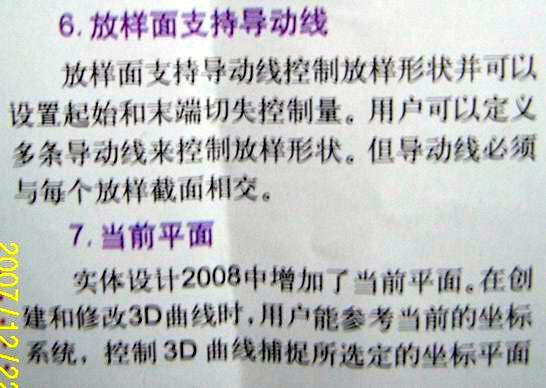 6. 放样面支持导动线
放样面支持导动线控制放样形状并可以
设置起始和末端切失控制量。用户可以定义
多条导动线来控制放样形状。但导动线必须
与每个放样截面相交。
7. 当前平面
实体设计2008中增加了当前平面。在创
建和修改3D曲线时,用户能参考当前的坐标
系统，控制3D 曲线捕捉所选定的坐标平面
2007/12/22